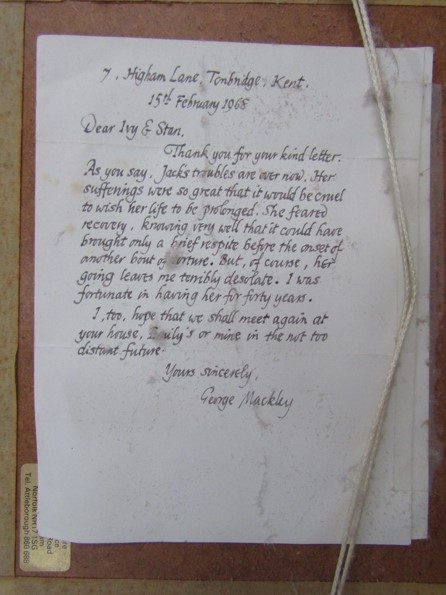 7, Higham Lane, Tonbridge, Kent.
15th February 1968
Dear Ivy & Stan,
Thank you for your kind letter.
As you say, Jack's troubles are over now. Her
sufferings were so great that it would be cruel
to wish her life to be prolonged. She feared
recovery, knowing very well that it could have
brought only a brief respite before the onset of
another bout of torture. But, of course, her
going leaves me terribly desolate. I was
fortunate in having her for forty years.
I, too, hope that we shall meet again at
your house, Emily's or mine in the not too
distant future.
Yours sincerely,
George Mackley
Norfolk NR17 1SG
Tel. Attleborough